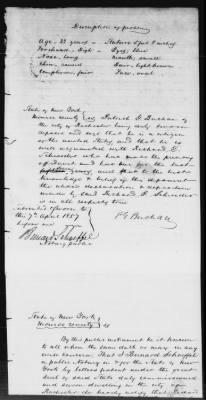 Description of person
Age - 22 years - Stature 5 feet 8 inches
Forehead, High - Eyes, Blue
Nose, long Mouth, small
Chin, round Hair, light brown
Complexion, fair Face, oval
State of New York
Monroe County ss Patrick G. Buchan of
the City of Rochester being duly sworn
deposes and says that he is a citizen
of the United States and that he is
well acquainted with Richard
who has the
and has been for the last
years, and that to the best
knowledge & belief of the deponent
the above declaration & description
made by said Richard
is in all respects true
Subscribed & Sworn to
this 7th April 1857 P G Buchan
before me
Bernard Schoeffel
Notary public
State of New York
Monroe County ss
By this public instrument be it known
to all whom the same doth or may in any
wise concern That I Bernard Schoeffel
a public Notary in & for the State of New
York by letters patent under the great
seal of said State duly commissioned
and sworn dwelling in the city of
Rochester do hereby certify that Richard